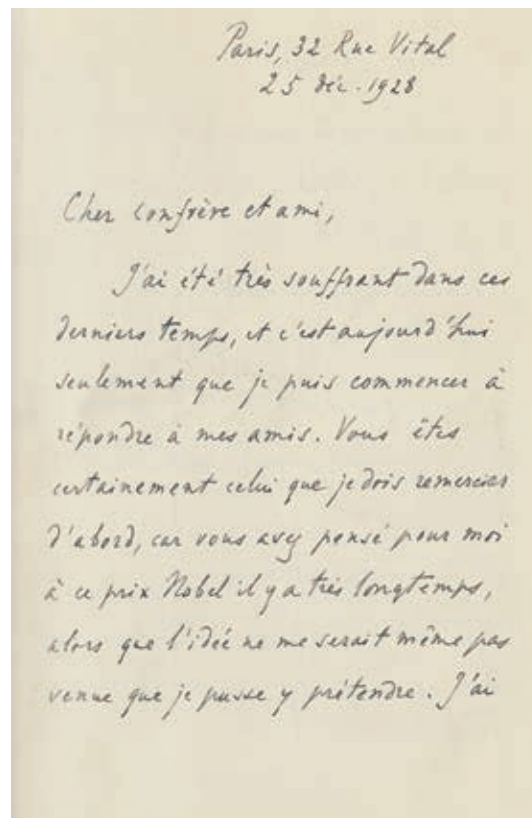 Paris, 32 Rue Vital
25 déc. 1928
Cher confrère et ami,
J'ai été très souffrant dans ces
derniers temps, et c'est aujourd'hui
seulement que je puis commencer à
répondre à mes amis. Vous êtes
certainement celui que je dois remercier
d'abord, car vous avez pensé pour moi
à ce prix Nobel il y a très longtemps,
alors que l'idée ne me serait même pas
venue que je pusse y prétendre. J'ai